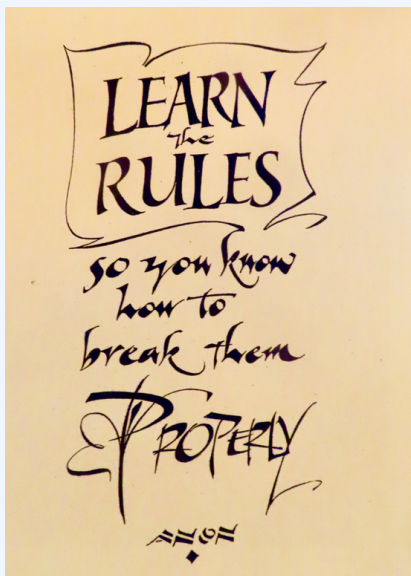 LEARN
the
RULES
so you know
how to
break them
PROPERLY
ANON